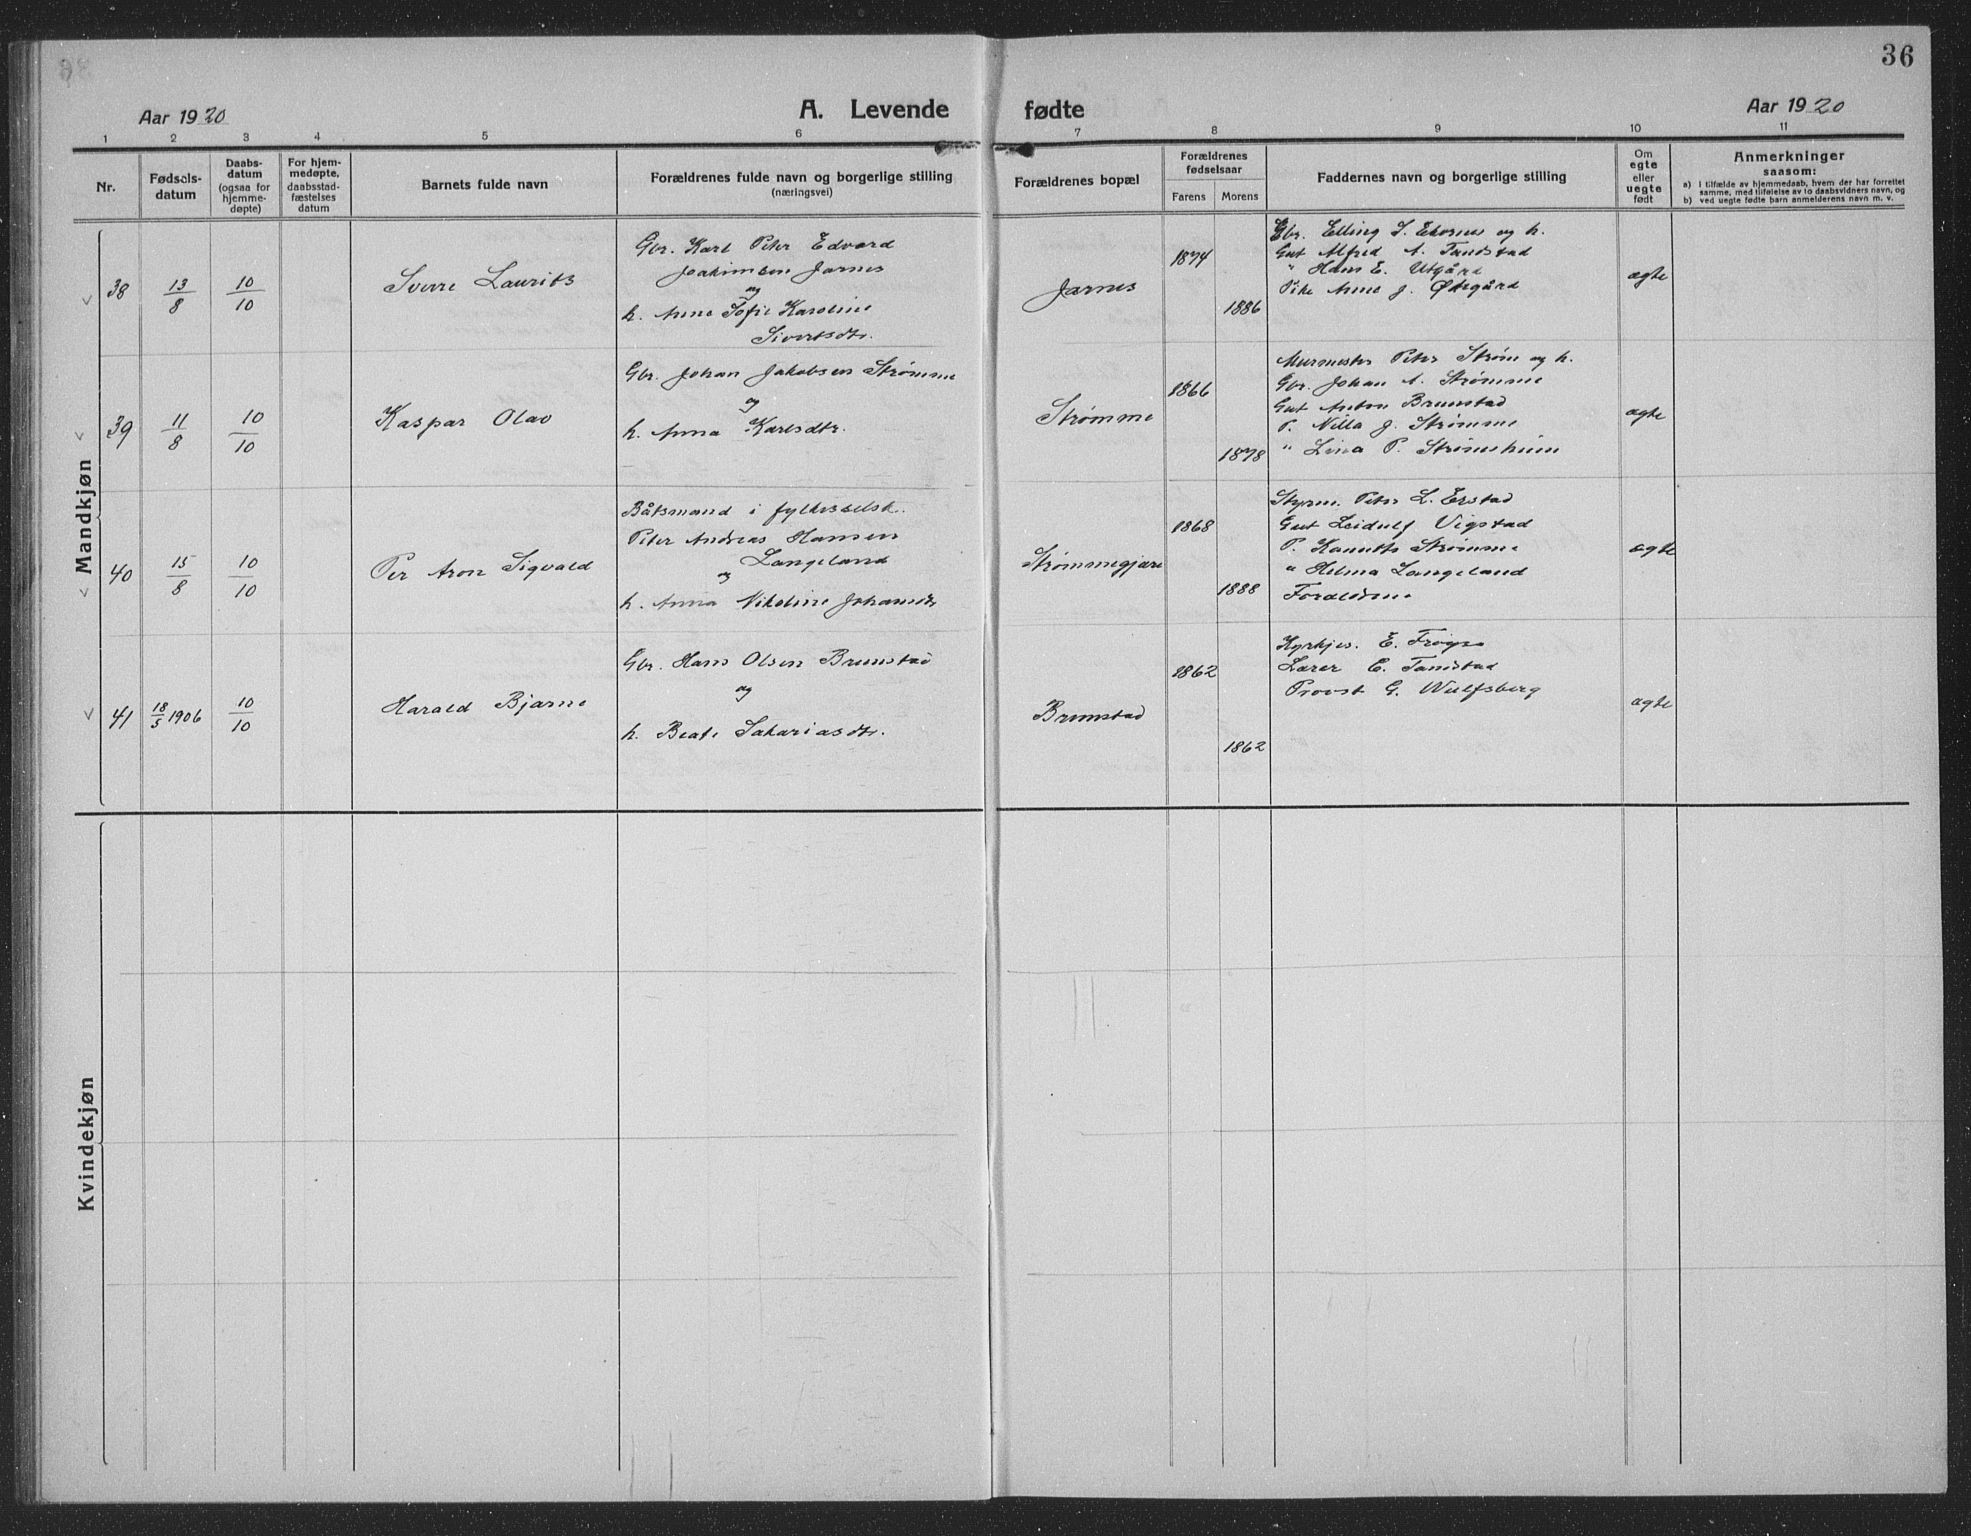 36
Aar 1920
A. Levende fødte
Aar 1920
1 2 3 4 5 6 7 8 9 10 11
Nr.
Fødsels-
datum
Daabs-
datum
(ogsaa for
hjemme-
døpte)
For hjem-
medøpte,
daabsstad-
fæstelses
datum
Barnets fulde navn
Forældrenes fulde navn og borgerlige stilling
(næringsvei)
Forældrenes bopæl
Forældrenes
fødselsaar
Farens
Morens
Faddernes navn og borgerlige stilling
Om
egte
eller
uegte
født
Anmerkninger
saasom:
a) i tilfælde av hjemmedaab, hvem der har forrettet
samme, med tilføielse av to daabsvidners navn, og
b) ved uegte fødte barn anmelderens navn m. v.
Mandkjøn
38
13/8
10/10
Sverre Laurits
Gbr. Karl Peter Edvard
Joakimsen Jarnes
og
h. Anne Sofie Karoline
Sivertsdtr.
Jarnes
1874
1886
Gbr. Elling S. Ekornes og h.
Gut Alfred A. Tandstad
" Hans E. Utgård
Pike Anne J. Ødegård
ægte
39
11/8
10/10
Kaspar Olav
Gbr. Johan Jakobsen Strømme
og
h. Anna Karlsdtr.
Strømme
1866
1878
Murmester Peter Strøm og h.
Gbr. Johan A. Strømme
Gut Anton Brunstad
P. Nilla J. Strømme
" Lina P. Strømsheim
ægte
40
15/8
10/10
Per Aron Sigvald
Båtsmand i fylkesselsk.
Peter Andreas Hansen
Langeland
og
h. Anna Nikoline Johansdtr
Strømmegjære
1868
1888
Styrm. Peter L. Erstad
Gut Leidulf Vigstad
P. Strømme
" Helma Langeland
Forældrene
ægte
41
18/5 1906
10/10
Harald Bjarne
Gbr. Hans Olsen Brunstad
og
h. Beate Sakariasdtr.
Brunstad
1862
1862
Kyrkjes. E.
Lærer C. Tandstad
Provst G. Wulfsberg
ægte
Kvindekjøn